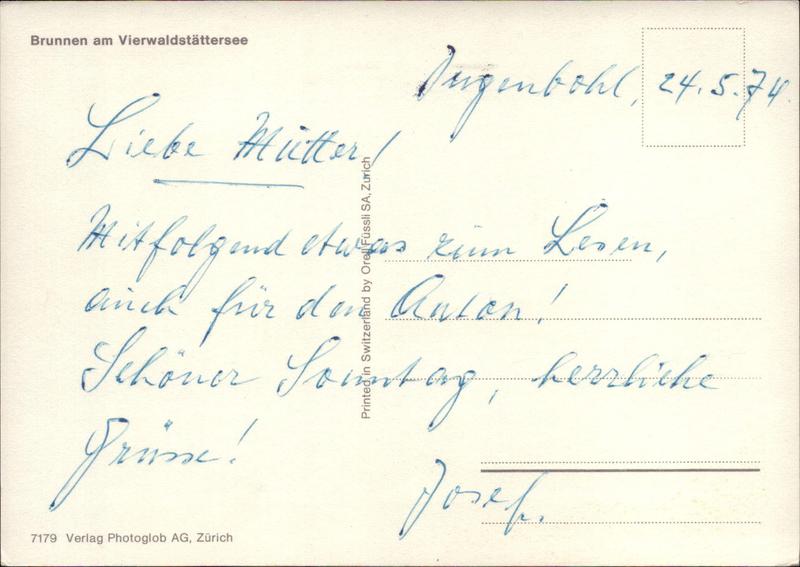 Brunnen am Vierwaldstättersee
Ingenbohl, 24.5.74.
Liebe Mutter!
Mitfolgend etwas zum Lesen,
auch für den Anton!
Schöner Sonntag, herrliche
Grüsse!
Josef.
Printed in Switzerland by Orell Füssli SA, Zürich
7179 Verlag Photoglob AG, Zürich